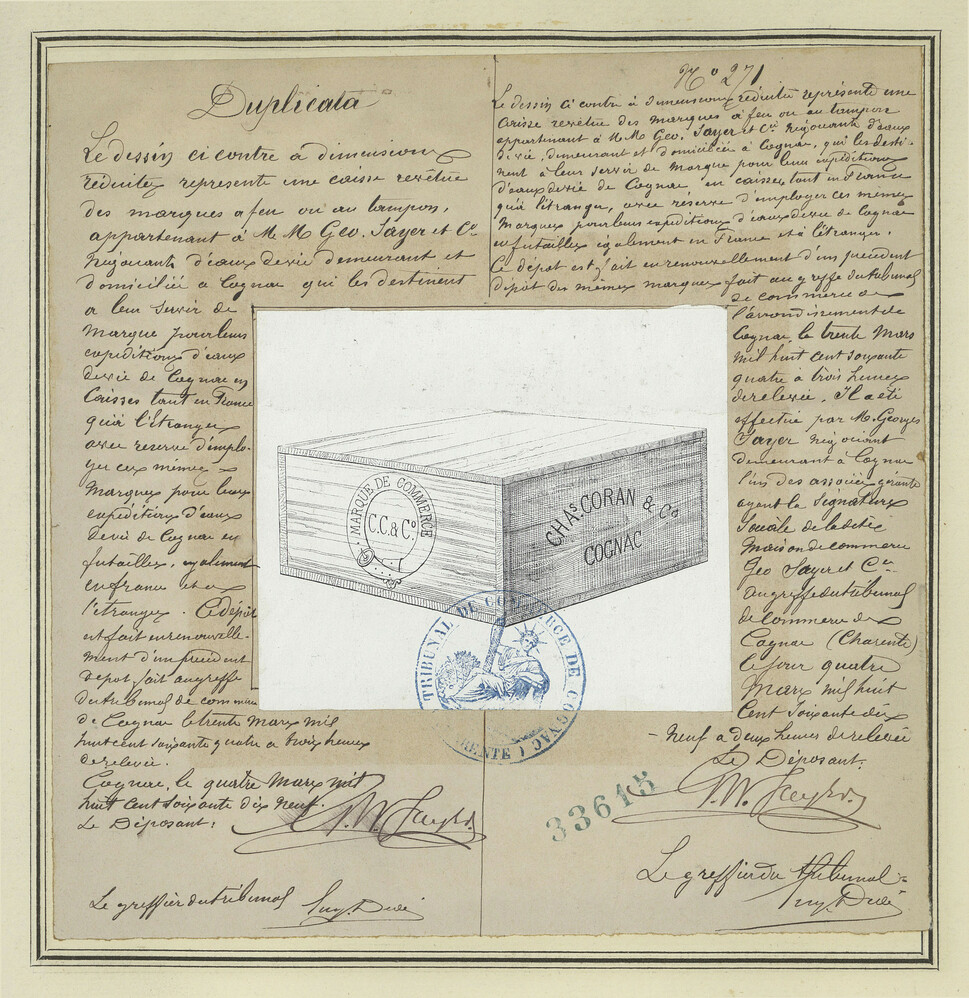 Duplicata
Le dessin ci contre à dimensions
réduites représente une caisse revêtue
des marques a feu ou au tampon,
appartenant à M M Geo. Sayer et Co
Négociants d'eaux de vie demeurant et
domiciliés a Cognac qui les destinent
a leur servir de
Marque pour leurs
expeditions d'eaux
de vie de Cognac en
Caisses tant en France
qu'à l'étranger
avec reserve d'emplo-
yer ces mêmes
Marques pour leurs
expéditions d'eaux
de vie de Cognac en
futailles, egalement
en france et a
l'étranger. Ce dépôt
est fait en renouvelle-
ment d'un précédent
depot fait au greffe
du tribunal de commerce
de Cognac le trente Mars mil
huit cent soixante quatre a trois heures
de relevée.
Cognac, le quatre Mars mil
huit cent soixante dix neuf.
Le Déposant:
Le greffier du tribunal
No 271
Le dessin ci contre à dimensions réduites représente une
Caisse revêtue des marques à feu ou au tampon
appartenant à M M Geo. Sayer et Cie Négociants d'eaux
de vie, demeurant et domiciliés à Cognac, qui les desti-
nent à leur servir de Marque pour leurs expéditions
d'eaux de vie de Cognac, en caisses, tant en France
qu'à l'étranger, avec reserve d'employer ces mêmes
Marques pour leurs expéditions d'eaux de vie de Cognac
en futailles egalement en France et à l'étranger.
Ce dépôt est fait en renouvellement d'un précédent
dépôt des mêmes marques fait au greffe du tribunal
de commerce de
l'arrondissement de
Cognac, le trente Mars
mil huit cent soixante
quatre à trois heures
de relevée. Il a été
effectué par M. Georges
Sayer négociant
demeurant à Cognac
l'un des associés gérants
ayant la signature
sociale de la dite
Maison de commerce
Geo Sayer et Cie
au greffe du tribunal
de commerce de
Cognac (Charente)
le jour quatre
Mars mil huit
Cent soixante dix
neuf a deux heures de relevée
Le Déposant.
Le greffier du tribunal
MARQUE DE COMMERCE
C.C. & Co.
CHAs. CORAN & Co
COGNAC
TRIBUNAL DE COMMERCE DE COGNAC
33615